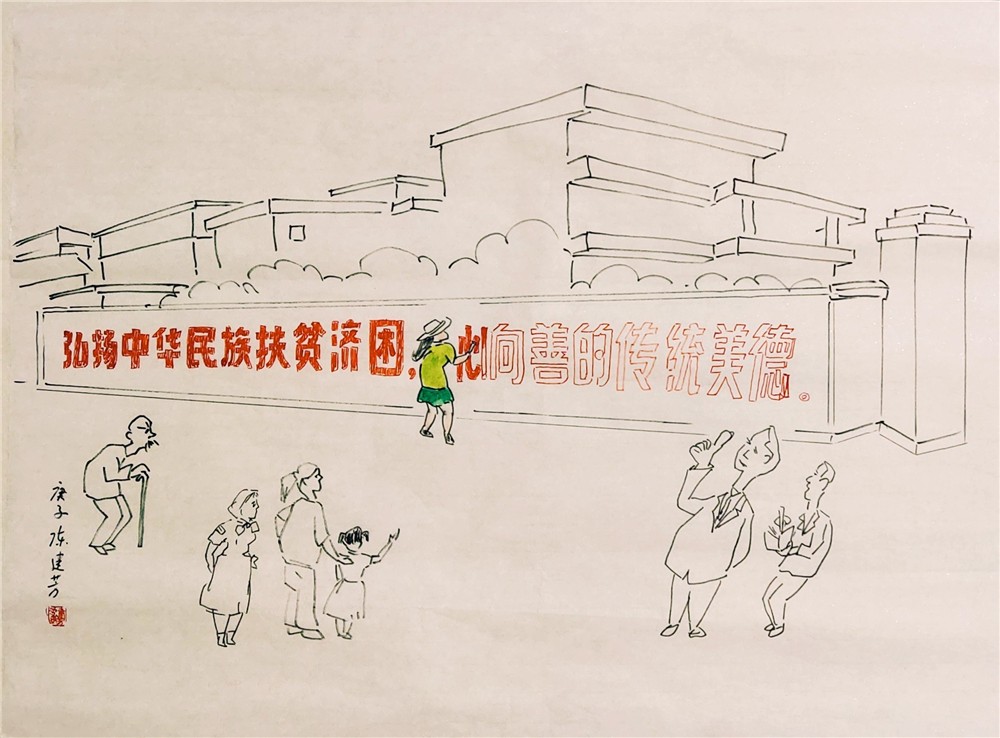 弘扬中华民族扶贫济困，向善的传统美德。
庚子陈建芳